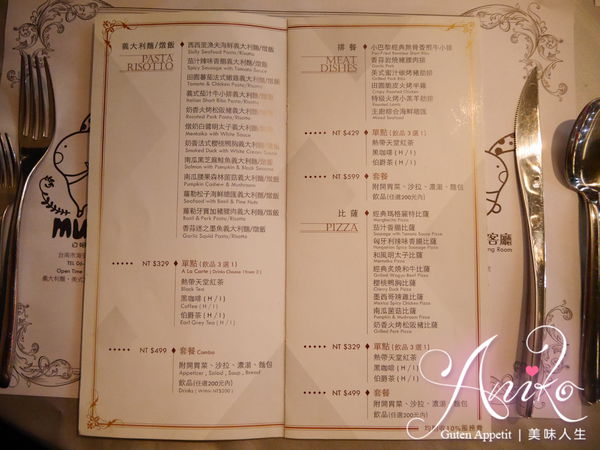 義大利麵/燉飯
PASTA
RISOTTO
西西里漁夫海鮮義大利麵/燉飯
Sicily Seafood Pasta/Risotto
茄汁辣味香腸義大利麵/燉飯
Spicy Sausage with Tomato Sauce
田園蕃茄法式嫩雞義大利麵/燉飯
Tomato & Chicken Pasta/Risotto
義式茄汁牛小排義大利麵/燉飯
Italian Short Ribs Pasta/Risotto
奶香火烤松阪豬義大利麵/燉飯
Roasted Pork Pasta/Risotto
燉奶白醬明太子義大利麵/燉飯
Mentaiko with White Sauce
奶香法式櫻桃鴨胸義大利麵/燉飯
Smoked Duck with White Cream Sauce
南瓜黑芝麻鮭魚義大利麵/燉飯
Salmon with Pumpkin & Black Sesame
南瓜腰果森林菌菇義大利麵/燉飯
Pumpkin Cashew & Mushroom
蘿勒松子海鮮總匯義大利麵/燉飯
Seafood with Basil & Pine Nuts
蘿勒牙買加豬腰肉義大利麵/燉飯
Basil & Pork Pasta/Risotto
香蒜送之墨魚義大利麵/燉飯
Garlic Squid Pasta/Risotto
NT $329 單點 (飲品3選1)
A La Carte
熱帶天堂紅茶
Black Tea
黑咖啡 (H / I)
Coffee (H / I)
伯爵茶 (H / I)
Earl Grey Tea (H / I)
NT $499 套餐 Combo
附開胃菜、沙拉、濃湯、麵包
Appetizer , Salad , Soup , Bread
飲品(任選200元內)
Drinks (Within NT$200)
排餐
MEAT
DISHES
小巴黎經典無骨香煎牛小排
香蒜岩燒豬腰肉排
Garlic Pork
美式蜜汁碳烤豬肋排
Grilled Pork Ribs
田園脆皮火烤半雞
Crispy Roasted Chicken
特級火烤小羔羊肋排
主廚綜合海鮮總匯
Mixed Seafood
NT $429 單點 (飲品3選1)
熱帶天堂紅茶
黑咖啡 (H / I)
伯爵茶 (H / I)
NT $599 套餐
附開胃菜、沙拉、濃湯、麵包
飲品(任選200元內)
比薩
PIZZA
經典瑪格麗特比薩
Margherita Pizza
茄汁香腸比薩
Sausage with Tomato Sauce Pizza
匈牙利辣味香腸比薩
Hungarian Spicy Sausage Pizza
和風明太子比薩
Mentaiko Pizza
經典炙燒和牛比薩
Grilled Wagyu Beef Pizza
櫻桃鴨胸比薩
Cherry Duck Pizza
墨西哥辣雞比薩
Mexico Spicy Chicken Pizza
南瓜菌菇比薩
Pumpkin & Mushroom Pizza
奶香火烤松阪豬比薩
Grilled Pork Pizza
NT $329 單點 (飲品3選1)
熱帶天堂紅茶
黑咖啡 (H / I)
伯爵茶 (H / I)
NT $499 套餐
附開胃菜、沙拉、濃湯、麵包
飲品(任選200元內)
10%服務費
客廳
Aniko
Guten Appetit | 美味人生